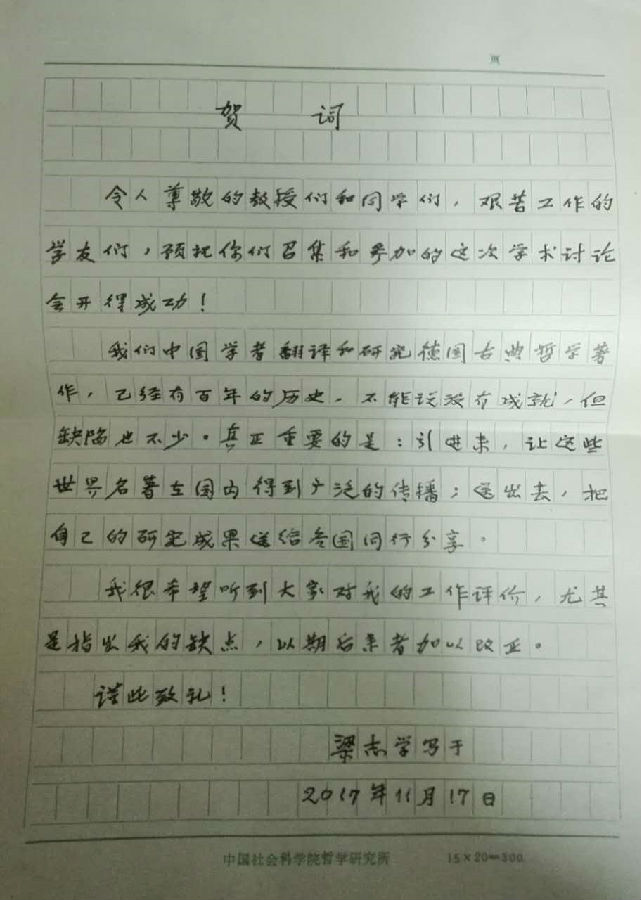 页
贺 词
令人尊敬的教授们和同学们，艰苦工作的
学友们，预祝你们召集和参加的这次学术讨论
会开得成功！
我们中国学者翻译和研究德国古典哲学著
作，已经有百年的历史。不能说没有成就，但
缺陷也不少。真正重要的是：引进来，让这些
世界名著在国内得到广泛的传播；送出去，把
自己的研究成果送给各国同行分享。
我很希望听到大家对我的工作评价，尤其
是指出我的缺点，以期后来者加以改正。
谨此致礼！
梁志学写于
2017年11月17日
中国社会科学院哲学研究所 15×20=300